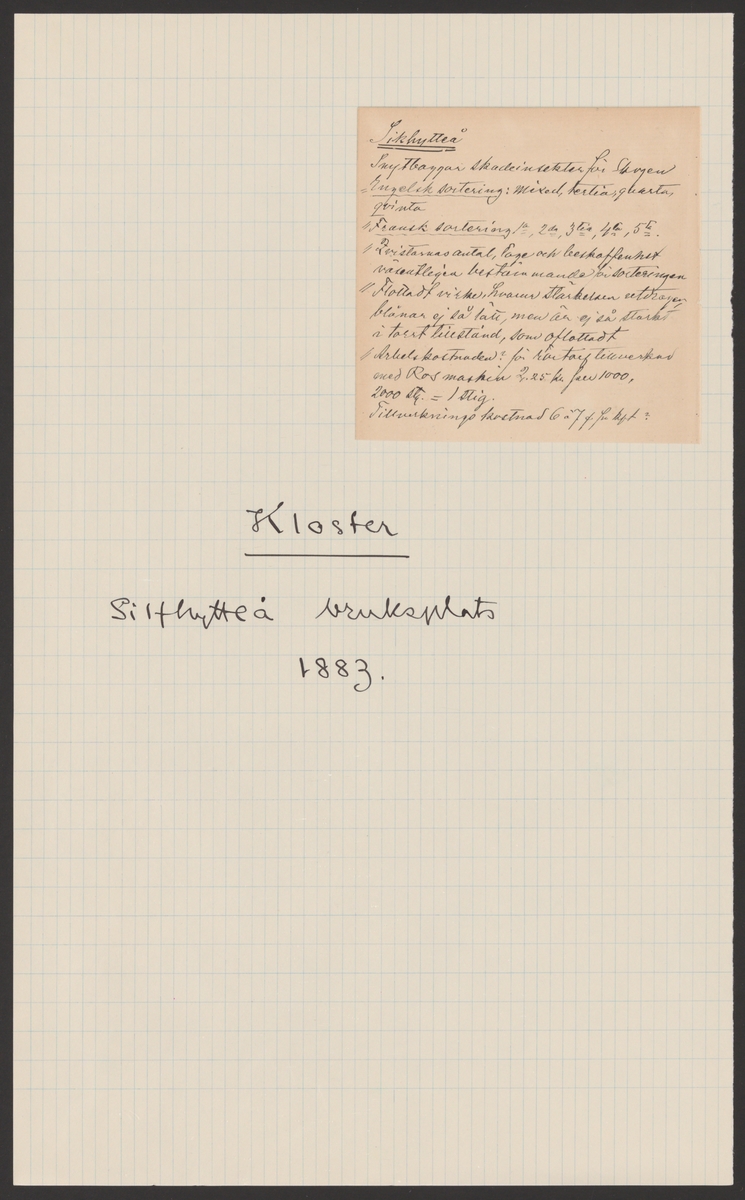 Sikhytteå
Snytbaggar skadeinsekter för Skogen
Engelsk sortering: mixed, tertia, quarta,
qvinta
Fransk sortering 1a, 2da, 3tia, 4ta, 5te.
Qvistarnas antal, läge och beskaffenhet
väsentligen bestämmande vi sorteringen
Flottadt virke, hvarur stärkelsen utdragen,
blånar ej så lätt, men är ej så starkt
i torrt tillstånd, som oflottadt
Arbetskostnaden: för rörtorf tillverkad
med Ros maskin 2.25 kr per 1000,
2000 st. = 1 stig.
Tillverknings kostnad 6 à 7
Kloster
Silfhytteå bruksplats
1883.